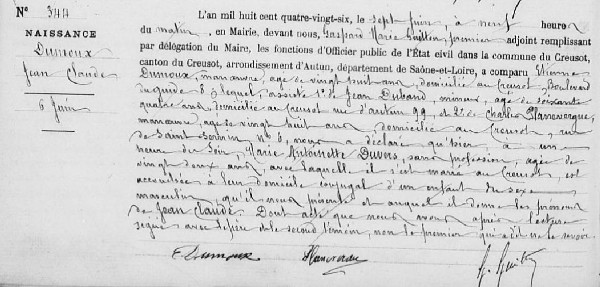 N° 344
NAISSANCE
Dumoux
Jean Claude
6 Juin
L'an mil huit cent quatre-vingt-six, le sept Juin à neuf heures
du matin, en Mairie, devant nous, Gaspard Marie Guitton, premier adjoint remplissant
par délégation du Maire, les fonctions d'Officier public de l'État civil dans la commune du Creusot,
canton du Creusot, arrondissement d'Autun, département de Saône-et-Loire, a comparu Etienne
Dumoux, manœuvre, âgé de vingt huit ans, domicilié au Creusot, Boulevard
du guide 8, lequel, assisté 1° de Jean Duband, mineur, âgé de soixante
quatre ans, domicilié au Creusot rue d'Autun 99, et 2° de Charles
manœuvre, âgé de vingt huit ans, domicilié au Creusot, rue
de Saint n° 6, nous a déclaré qu'hier, à une
heure du soir, Marie Antoinette Duvers, sans profession, âgée de
vingt deux ans, avec laquelle il s'est marié au Creusot, est
accouchée à leur domicile conjugal d'un enfant du sexe
masculin, qu'il nous présente et auquel il donne les prénoms
de Jean Claude. Dont acte que nous avons après lecture
signé avec le père et le second témoin, non le premier qui a dit ne le savoir
Dumoux
G. Guitton